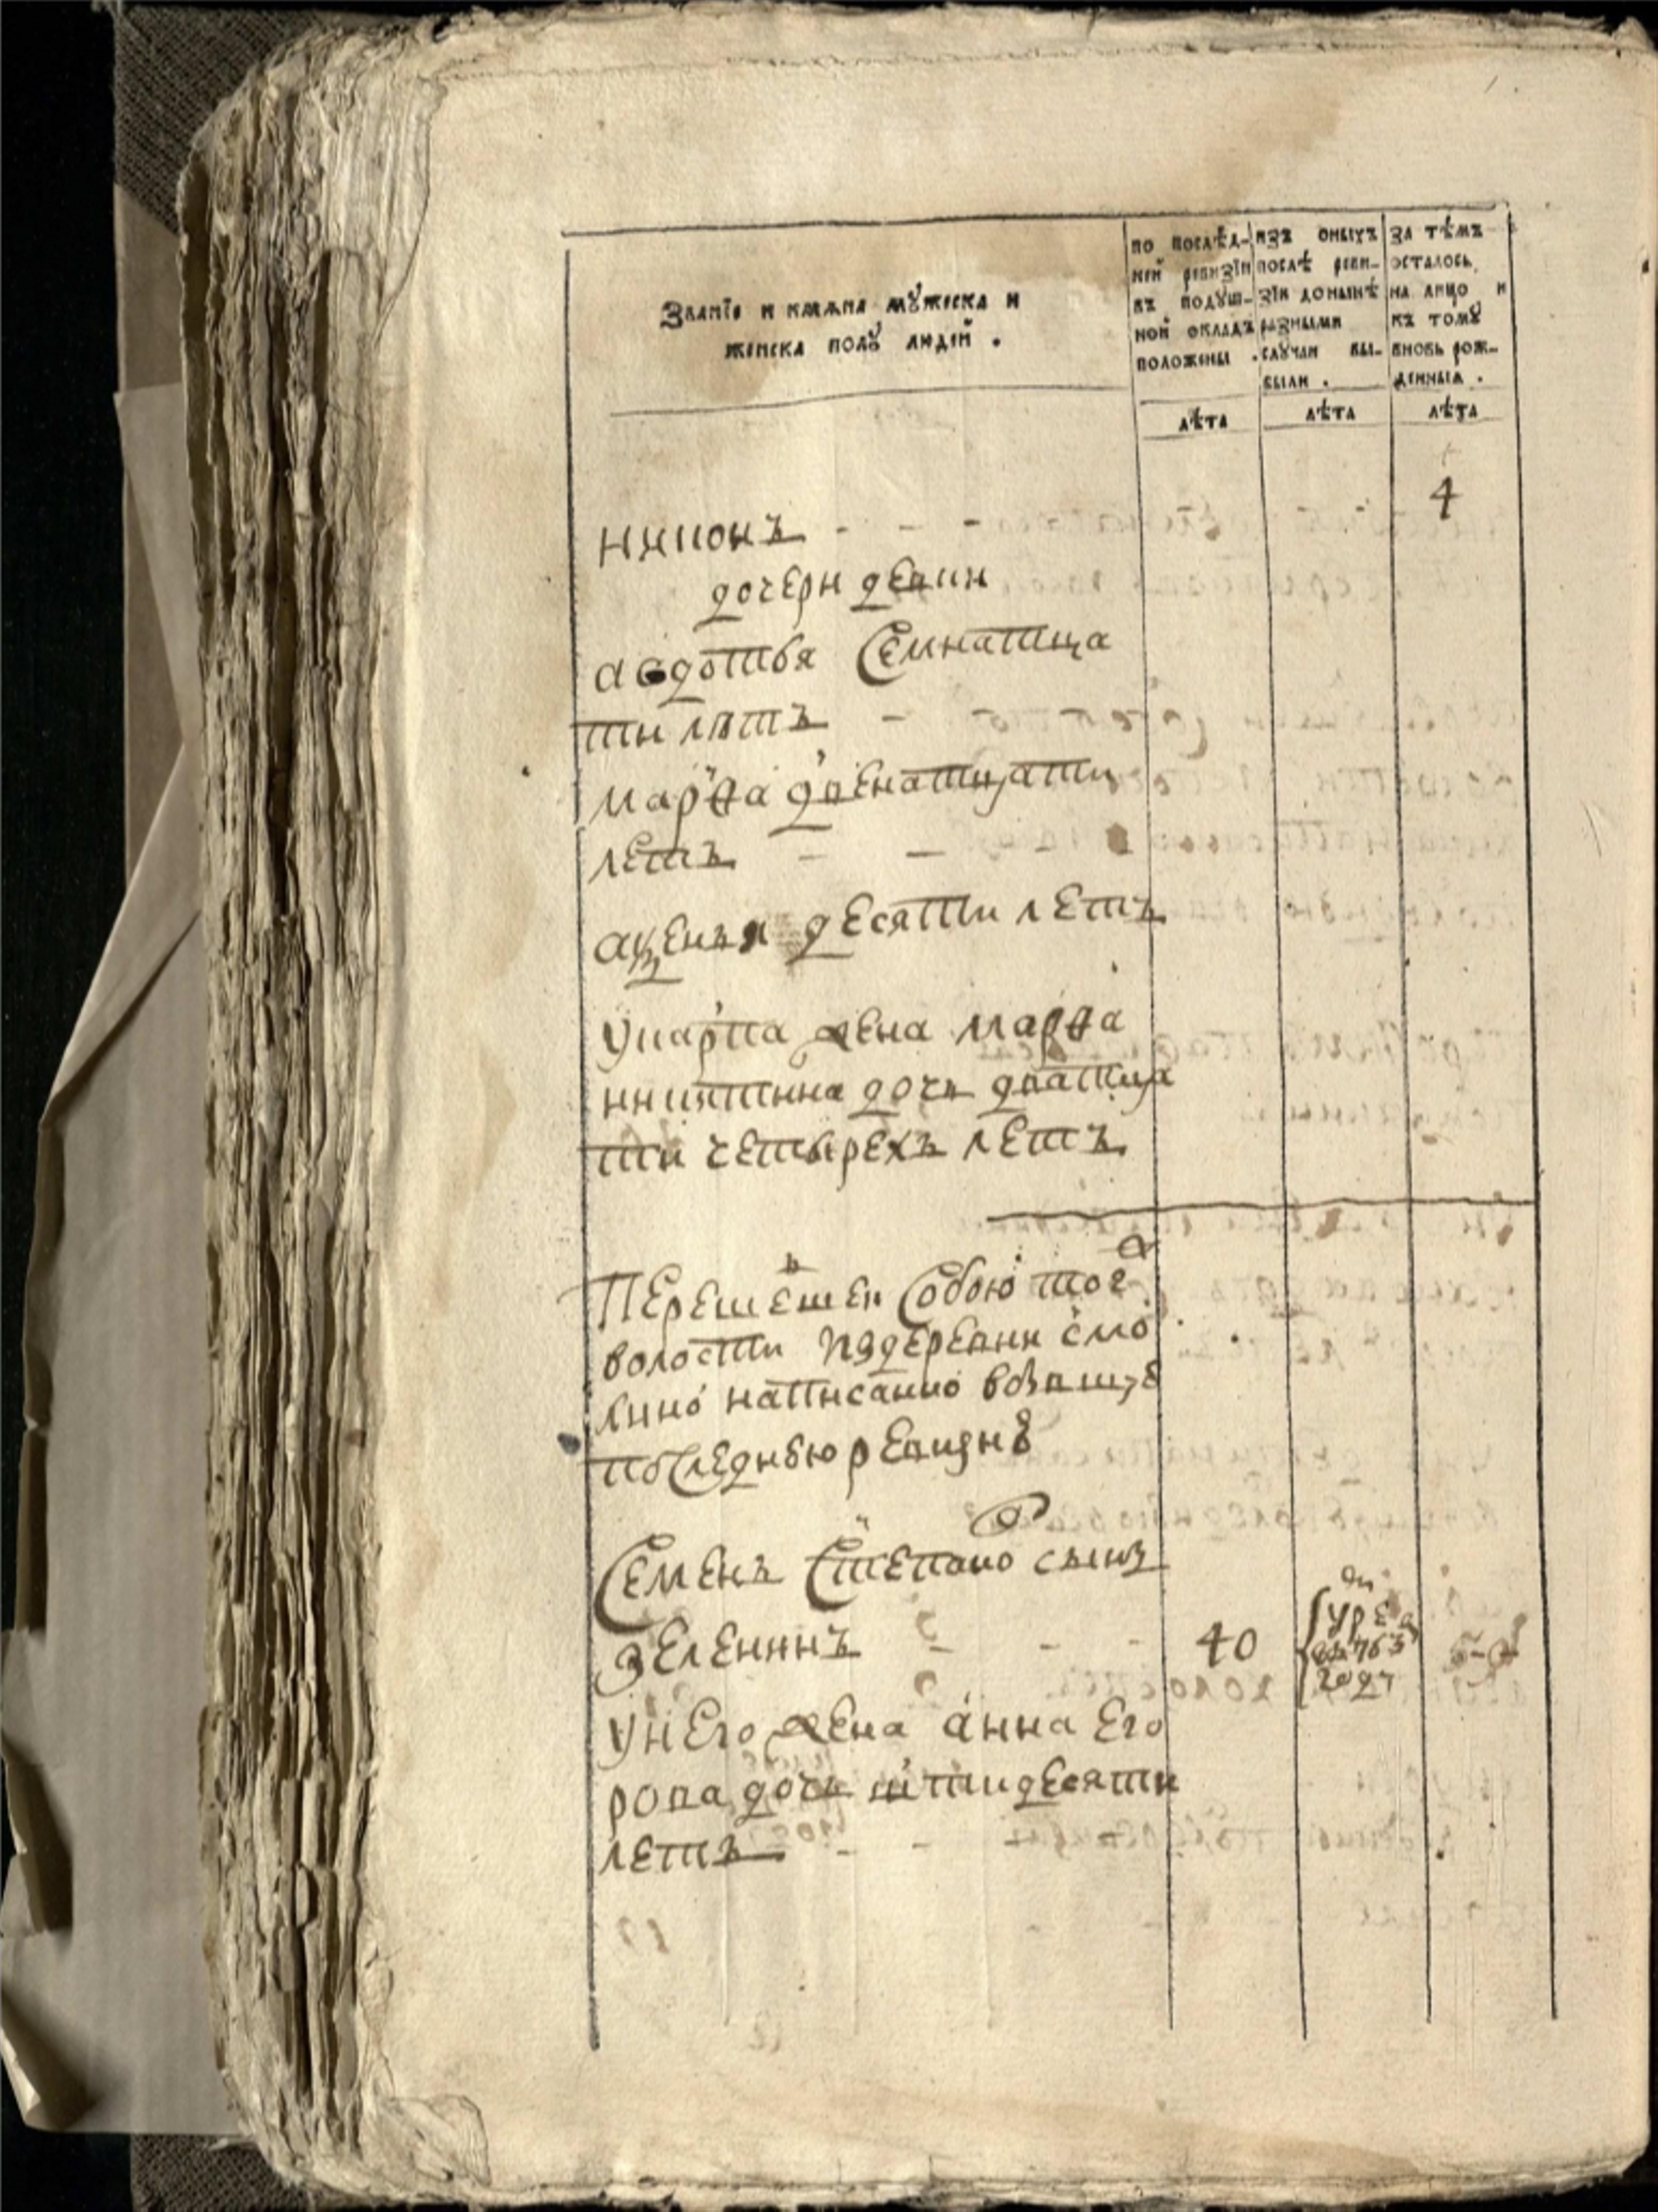 Званїе и имѧна мꙋжеска и
женска полꙋ людей .
по послѣд-
ней ревизїи
въ подꙋш-
ной окладъ
положены .
изъ оныхъ
послѣ реви-
зїи донынѣ
разными
слꙋчаи вы-
были .
за тѣмъ
осталось
на лицо и
къ томꙋ
вновь рож-
денныѧ .
лѣта
лѣта
лѣта
никонъ - - - 4
дочери девки
авдотья Семнатца
ти лѣтъ -
марѳа двенатцати
летъ - -
аксенья десяти летъ
укарпа жена марѳа
никитина дочь дватца
ти четырехъ летъ
Перешедшей Собою тог
волости издеревни
написанно
последнюю ревизиꙋ
Семенъ Степано сынъ
зеленинъ - - - 40
763
году
унего жена анна Его
рова дочь петидесяти
летъ - -